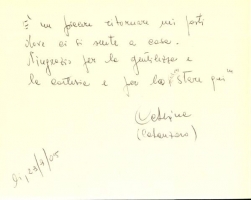 È un piacere ritornare nei posti
dove ci si sente a casa.
Ringrazio per la gentilezza e
la cortesia e per lo "stare qui"
Caterina
(Catanzaro)
29/7/05